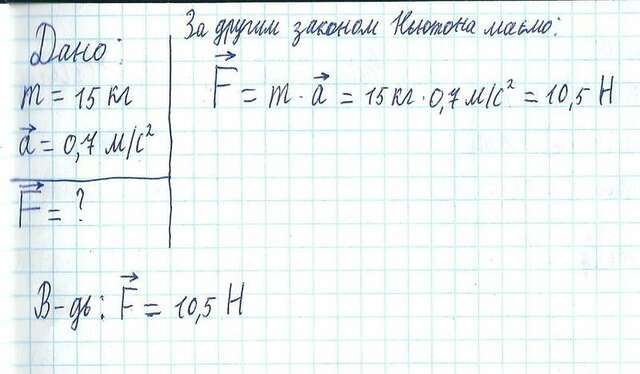 Дано:
m = 15 кг
a⃗ = 0,7 м/с²
F⃗ = ?
За другим законом Ньютона маємо:
F⃗ = m · a⃗ = 15 кг · 0,7 м/с² = 10,5 Н
В-дь: F⃗ = 10,5 Н